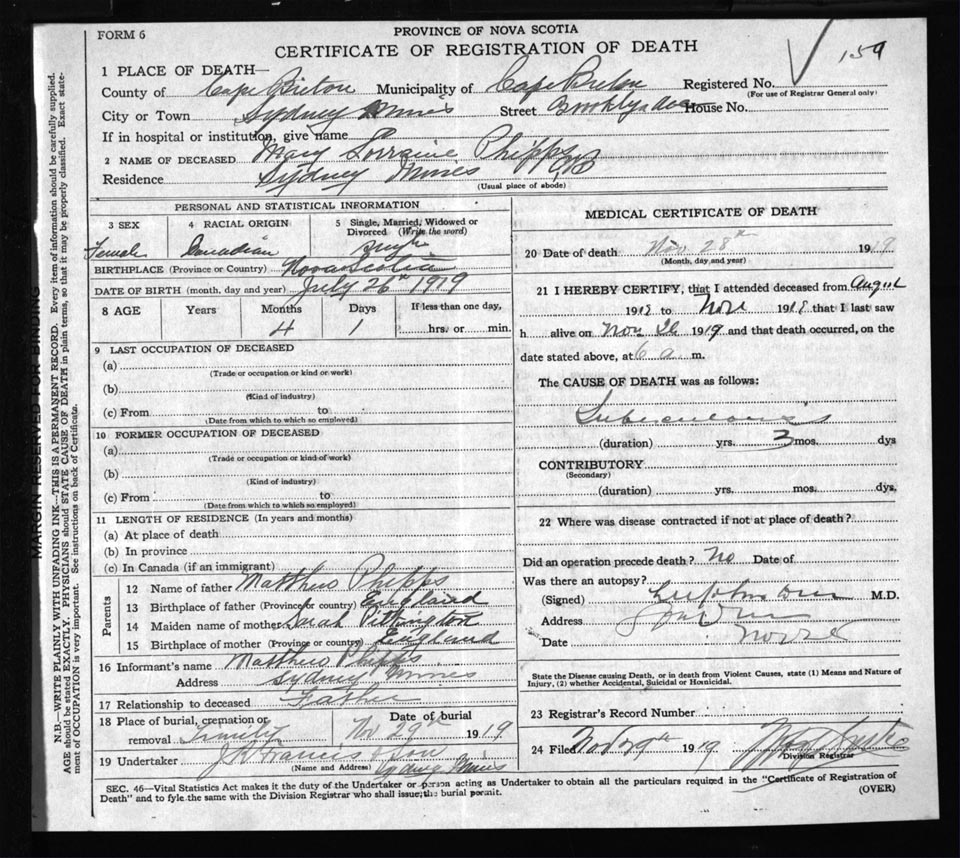 FORM 6
PROVINCE OF NOVA SCOTIA
CERTIFICATE OF REGISTRATION OF DEATH
159
1 PLACE OF DEATH—
County of Cape Breton Municipality of Cape Breton Registered No.
(For use of Registrar General only)
City or Town Sydney Mines Street Brooklyn Ave House No.
If in hospital or institution, give name
2 NAME OF DECEASED Mary Lorraine Phipps
Residence Sydney Mines
(Usual place of abode)
PERSONAL AND STATISTICAL INFORMATION
3 SEX 4 RACIAL ORIGIN 5 Single, Married, Widowed or Divorced (Write the word)
Female Canadian Single
BIRTHPLACE (Province or Country) Nova Scotia
DATE OF BIRTH (month, day and year) July 26th 1919
8 AGE Years Months Days If less than one day,
4 1 hrs. or min.
9 LAST OCCUPATION OF DECEASED
(a)
(Trade or occupation or kind or work)
(b)
(Kind of industry)
(c) From to
(Date from which to which so employed)
10 FORMER OCCUPATION OF DECEASED
(a)
(Trade or occupation or kind of work)
(b)
(Kind of industry)
(c) From to
(Date from which to which so employed)
11 LENGTH OF RESIDENCE (In years and months)
(a) At place of death
(b) In province
(c) In Canada (if an immigrant)
Parents
12 Name of father Matthew Phipps
13 Birthplace of father (Province or country) England
14 Maiden name of mother Sarah Pittington
15 Birthplace of mother (Province or country) England
16 Informant's name Matthew Phipps
Address Sydney Mines
17 Relationship to deceased Father
18 Place of burial, cremation or removal Trinity Date of burial Nov 29th 1919
19 Undertaker J Francis & Son
(Name and Address) Sydney Mines
MEDICAL CERTIFICATE OF DEATH
20 Date of death Nov 28th 1919
(Month, day and year)
21 I HEREBY CERTIFY, that I attended deceased from August
1918 to Nov 1918 that I last saw
h alive on Nov 26 1919 and that death occurred, on the
date stated above, at 6 a m.
The CAUSE OF DEATH was as follows:
Tuberculosis
(duration) yrs. 3 mos. dys
CONTRIBUTORY
(Secondary)
(duration) yrs. mos. dys.
22 Where was disease contracted if not at place of death?
Did an operation precede death? No Date of
Was there an autopsy?
(Signed) M.D.
Address
Date
State the Disease causing Death, or in death from Violent Causes, state (1) Means and Nature of
Injury, (2) whether Accidental, Suicidal or Homicidal.
23 Registrar's Record Number
24 Filed Nov 29th 1919
Division Registrar
SEC. 46—Vital Statistics Act makes it the duty of the Undertaker or person acting as Undertaker to obtain all the particulars required in the "Certificate of Registration of
Death" and to fyle the same with the Division Registrar who shall issue the burial permit.
(OVER)
MARGIN RESERVED FOR BINDING
N.B.—WRITE PLAINLY WITH UNFADING INK—THIS IS A PERMANENT RECORD. Every item of information should be carefully supplied.
AGE should be stated EXACTLY. PHYSICIANS should STATE CAUSE OF DEATH in plain terms, so that it may be properly classified. Exact state-
ment of OCCUPATION is very important. See instructions on back of Certificate.